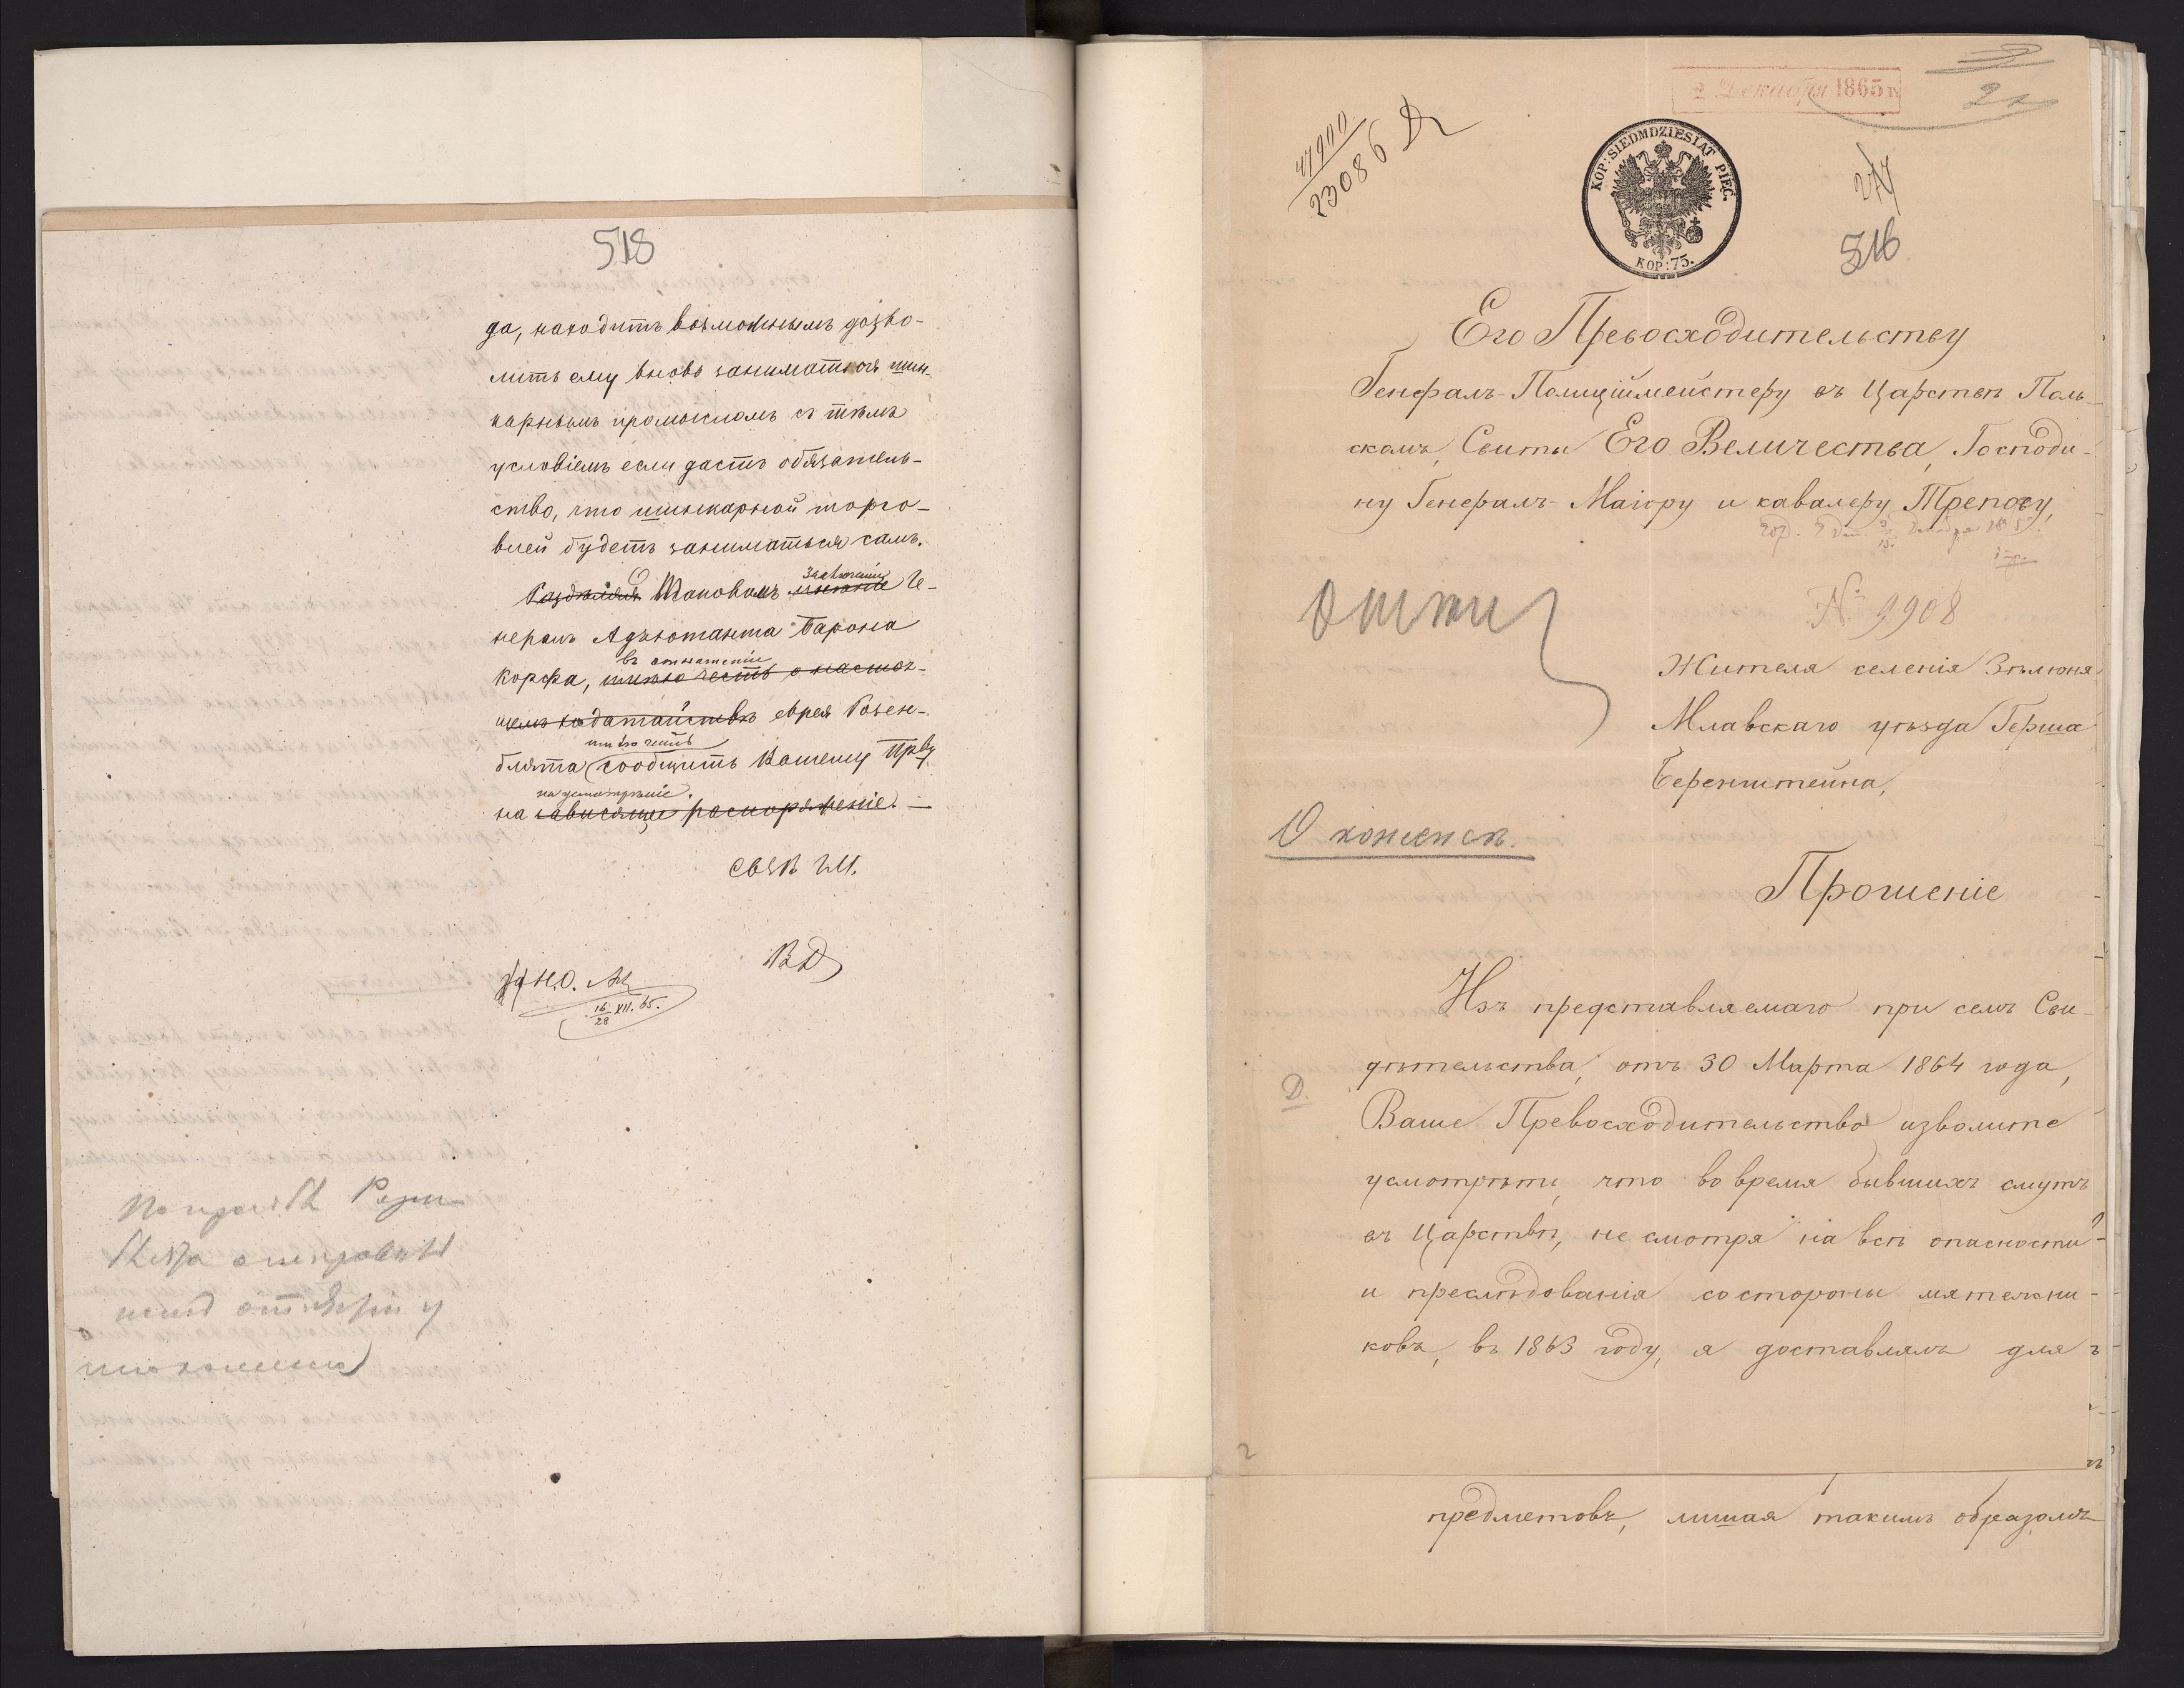 518
да, находитъ возможнымъ дозво-
лить ему вновь заниматься шин-
карнымъ промысломъ съ тѣмъ
условіемъ если дастъ обязатель-
ство, что шинкарной торго-
влей будетъ заниматься самъ.
Раздѣляя Таковымъ мнѣніе заключеніе Ге-
нералъ Адъютанта Барона
Корфа, въ отношеніи имѣю честь о настоя-
щемъ ходатайствѣ еврея Розен-
блята имѣю честь сообщить Вашему Прву
на усмотрѣніе.
на зависящее распоряженіе. —
16/28 XII. 65.
2 Декабря 1865 г.
41900
23086
KOP: SIEDMDZIESIĄT PIĘĆ.
КОР: 75.
274
516
Его Превосходительству
Генералъ-Полиціймейстеру въ Царствѣ Поль-
скомъ, Свиты Его Величества, Господи-
ну Генералъ-Маіору и кавалеру Трепову,
№ 9908
Жителя селенія Зѣлюня
Млавскаго уѣзда Герша
Беренштейна,
Прошеніе
Изъ представляемаго при семъ Сви-
дѣтельства, отъ 30 Марта 1864 года,
Д.
Ваше Превосходительство изволите
усмотрѣть, что во время бывшихъ смутъ
въ Царствѣ, не смотря на всѣ опасности
и преслѣдованія со стороны мятежни-
ковъ, въ 1863 году, я доставлялъ для
2
предметовъ, лишая такимъ образомъ